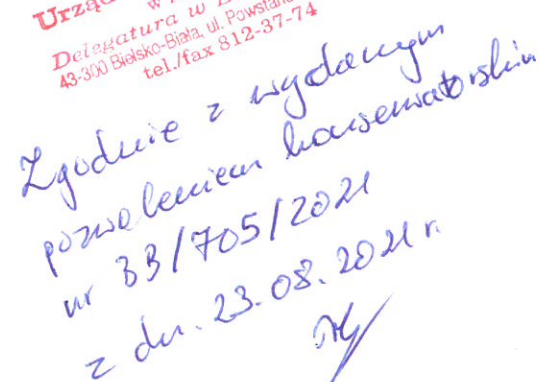 Urząd
w
Delegatura w B
43-300 Bielsko-Biała, ul. Powstań
tel./fax 812-37-74
Zgodnie z wydanym
pozwoleniem konserwatorskim
nr BB/705/2021
z dn. 23.08.2021 r.